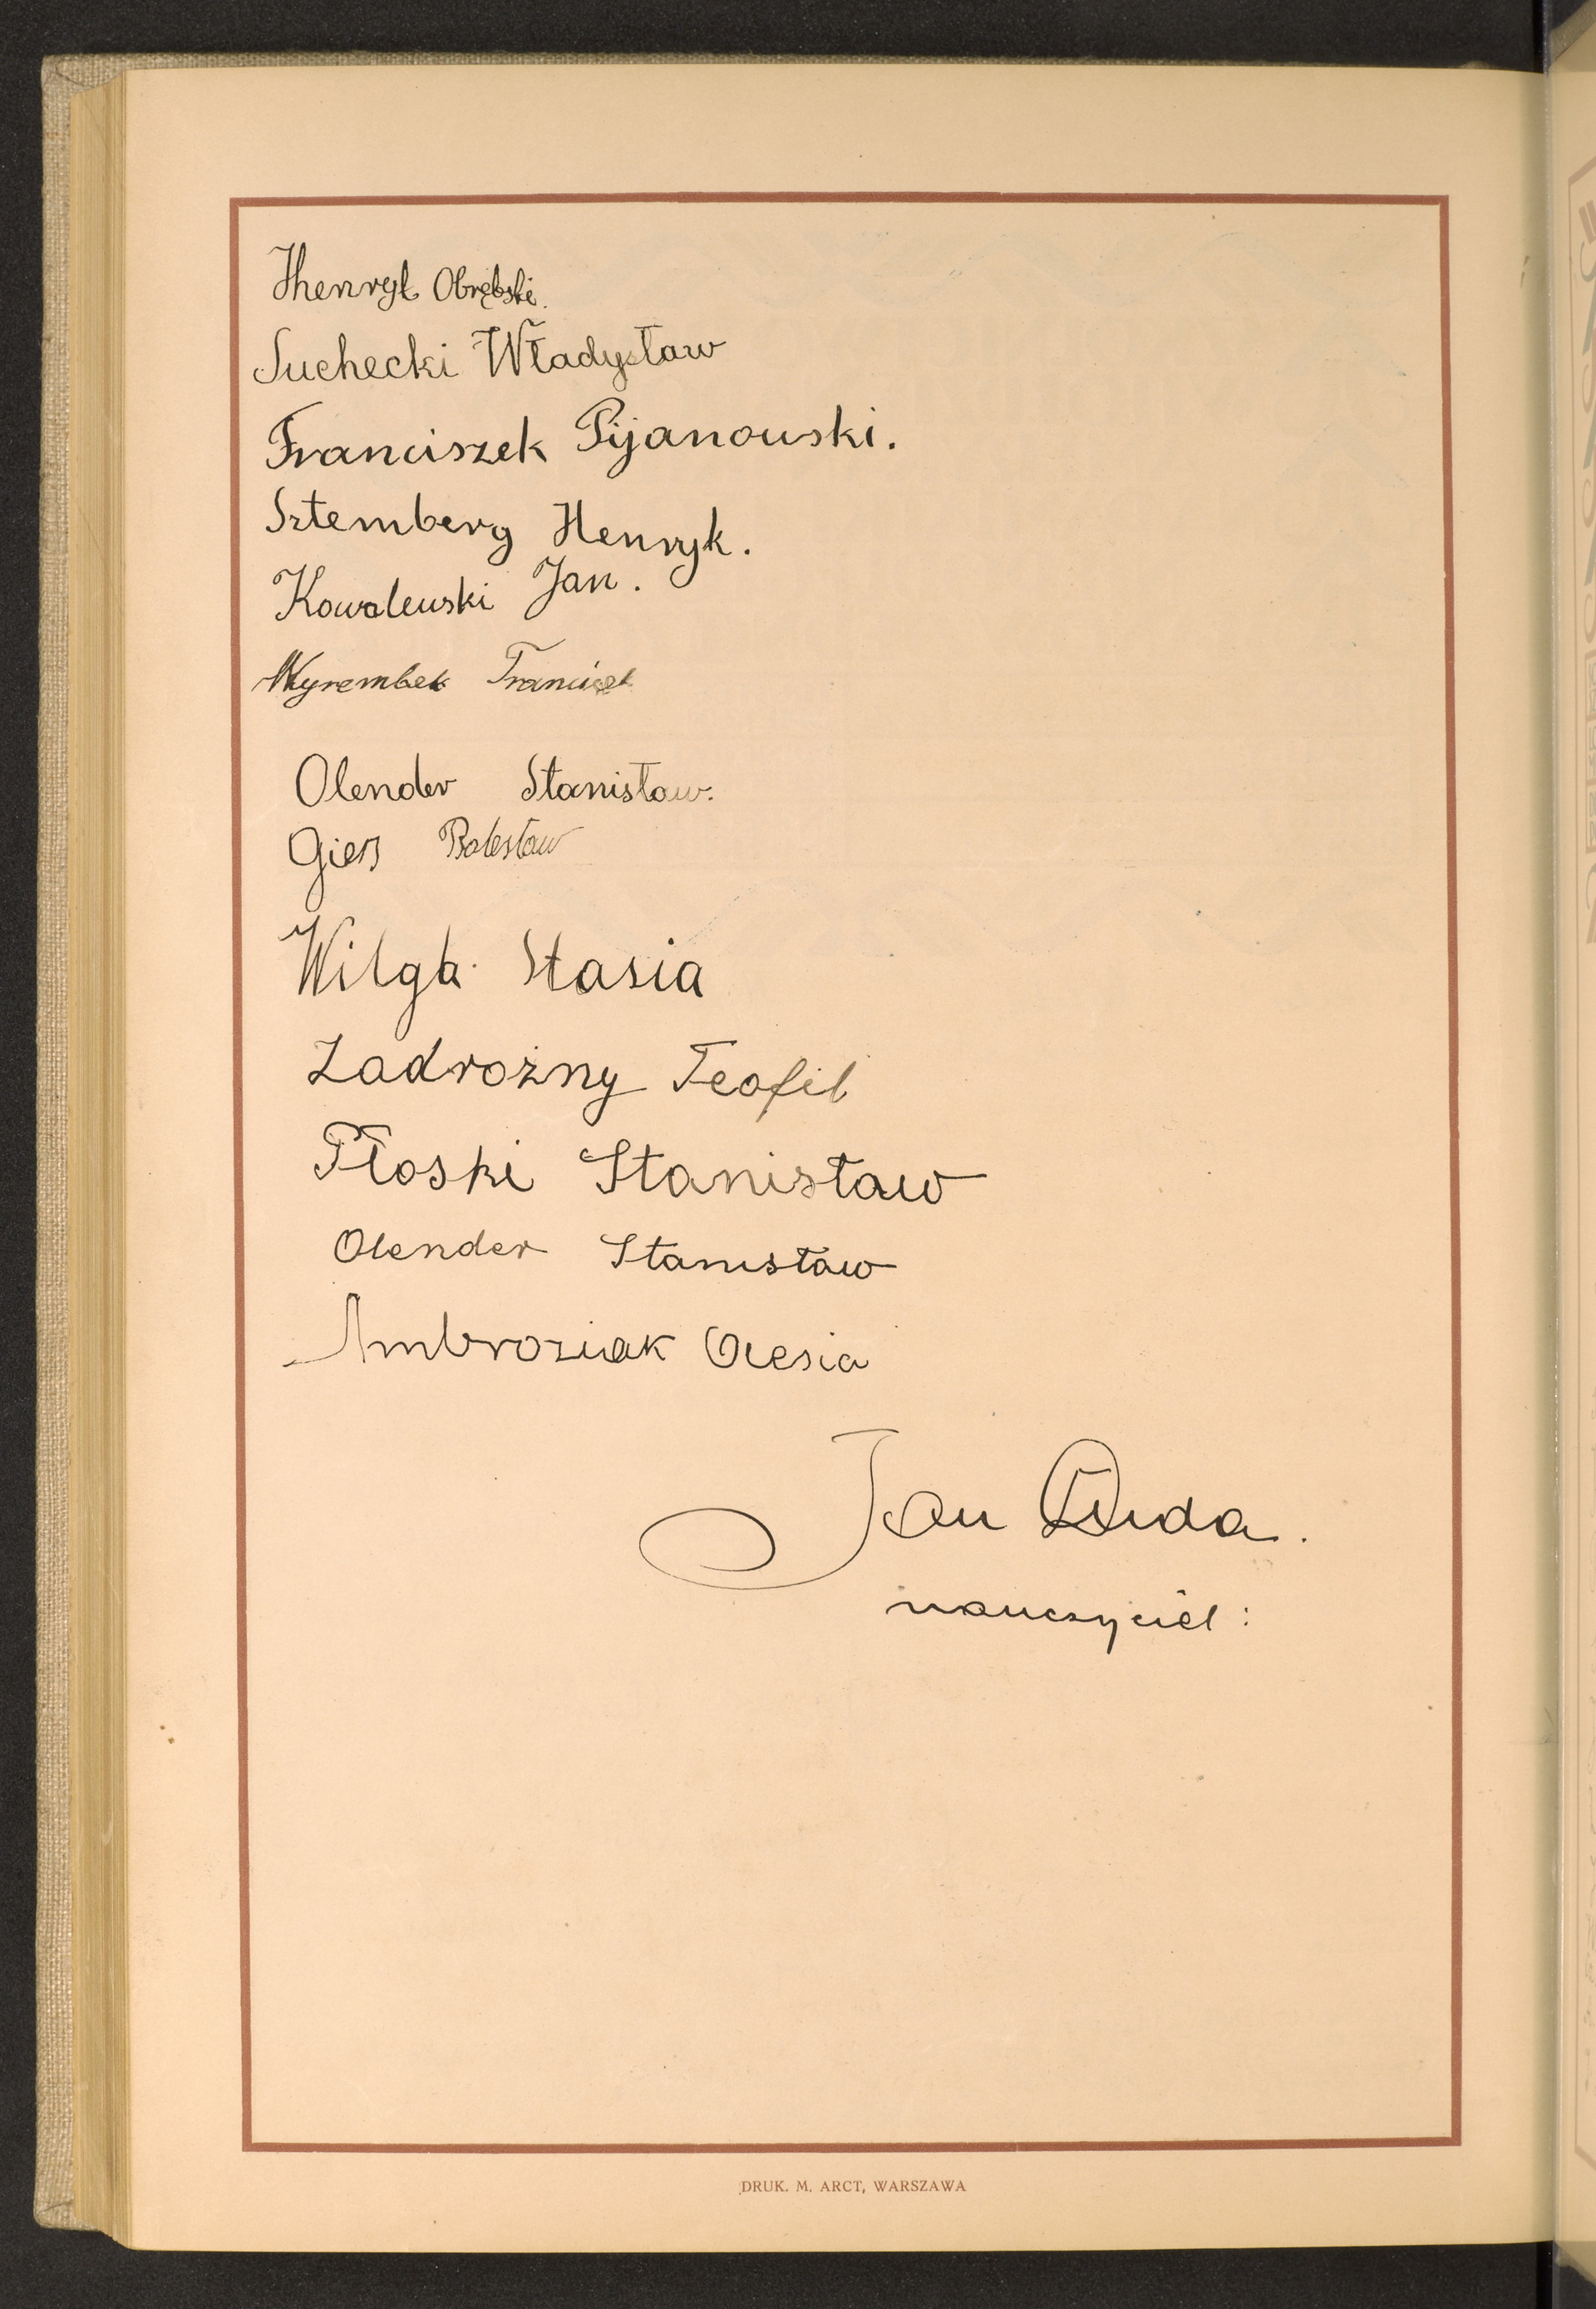 Hhenryk Obrębski.
Suchecki Władysław
Franciszek Pijanowski.
Sztemberg Henryk.
Kowalewski Jan.
Wyrembek
Olender Stanisław.
Giers Bolesław
Wilga Stasia
Zadrożny Teofil
Płoski Stanisław
Olender Stanisław
Ambroziak Olesia
Jan Duda.
nauczyciel:
DRUK. M. ARCT, WARSZAWA